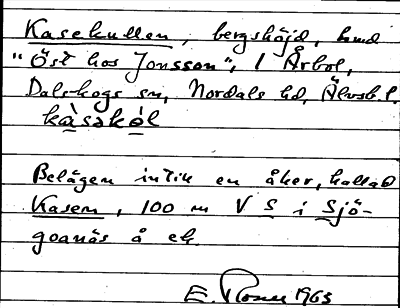 Kasekullen, bergshöjd, hmd
"Öst hos Jonsson", 1 Årbol,
Dalskogs sn, Nordals hd, Älvsb. l.
kàsakól
Belägen intill en åker, kallad
Kasen, 100 m V S i Sjö-
goanäs å ek.
E. 1965